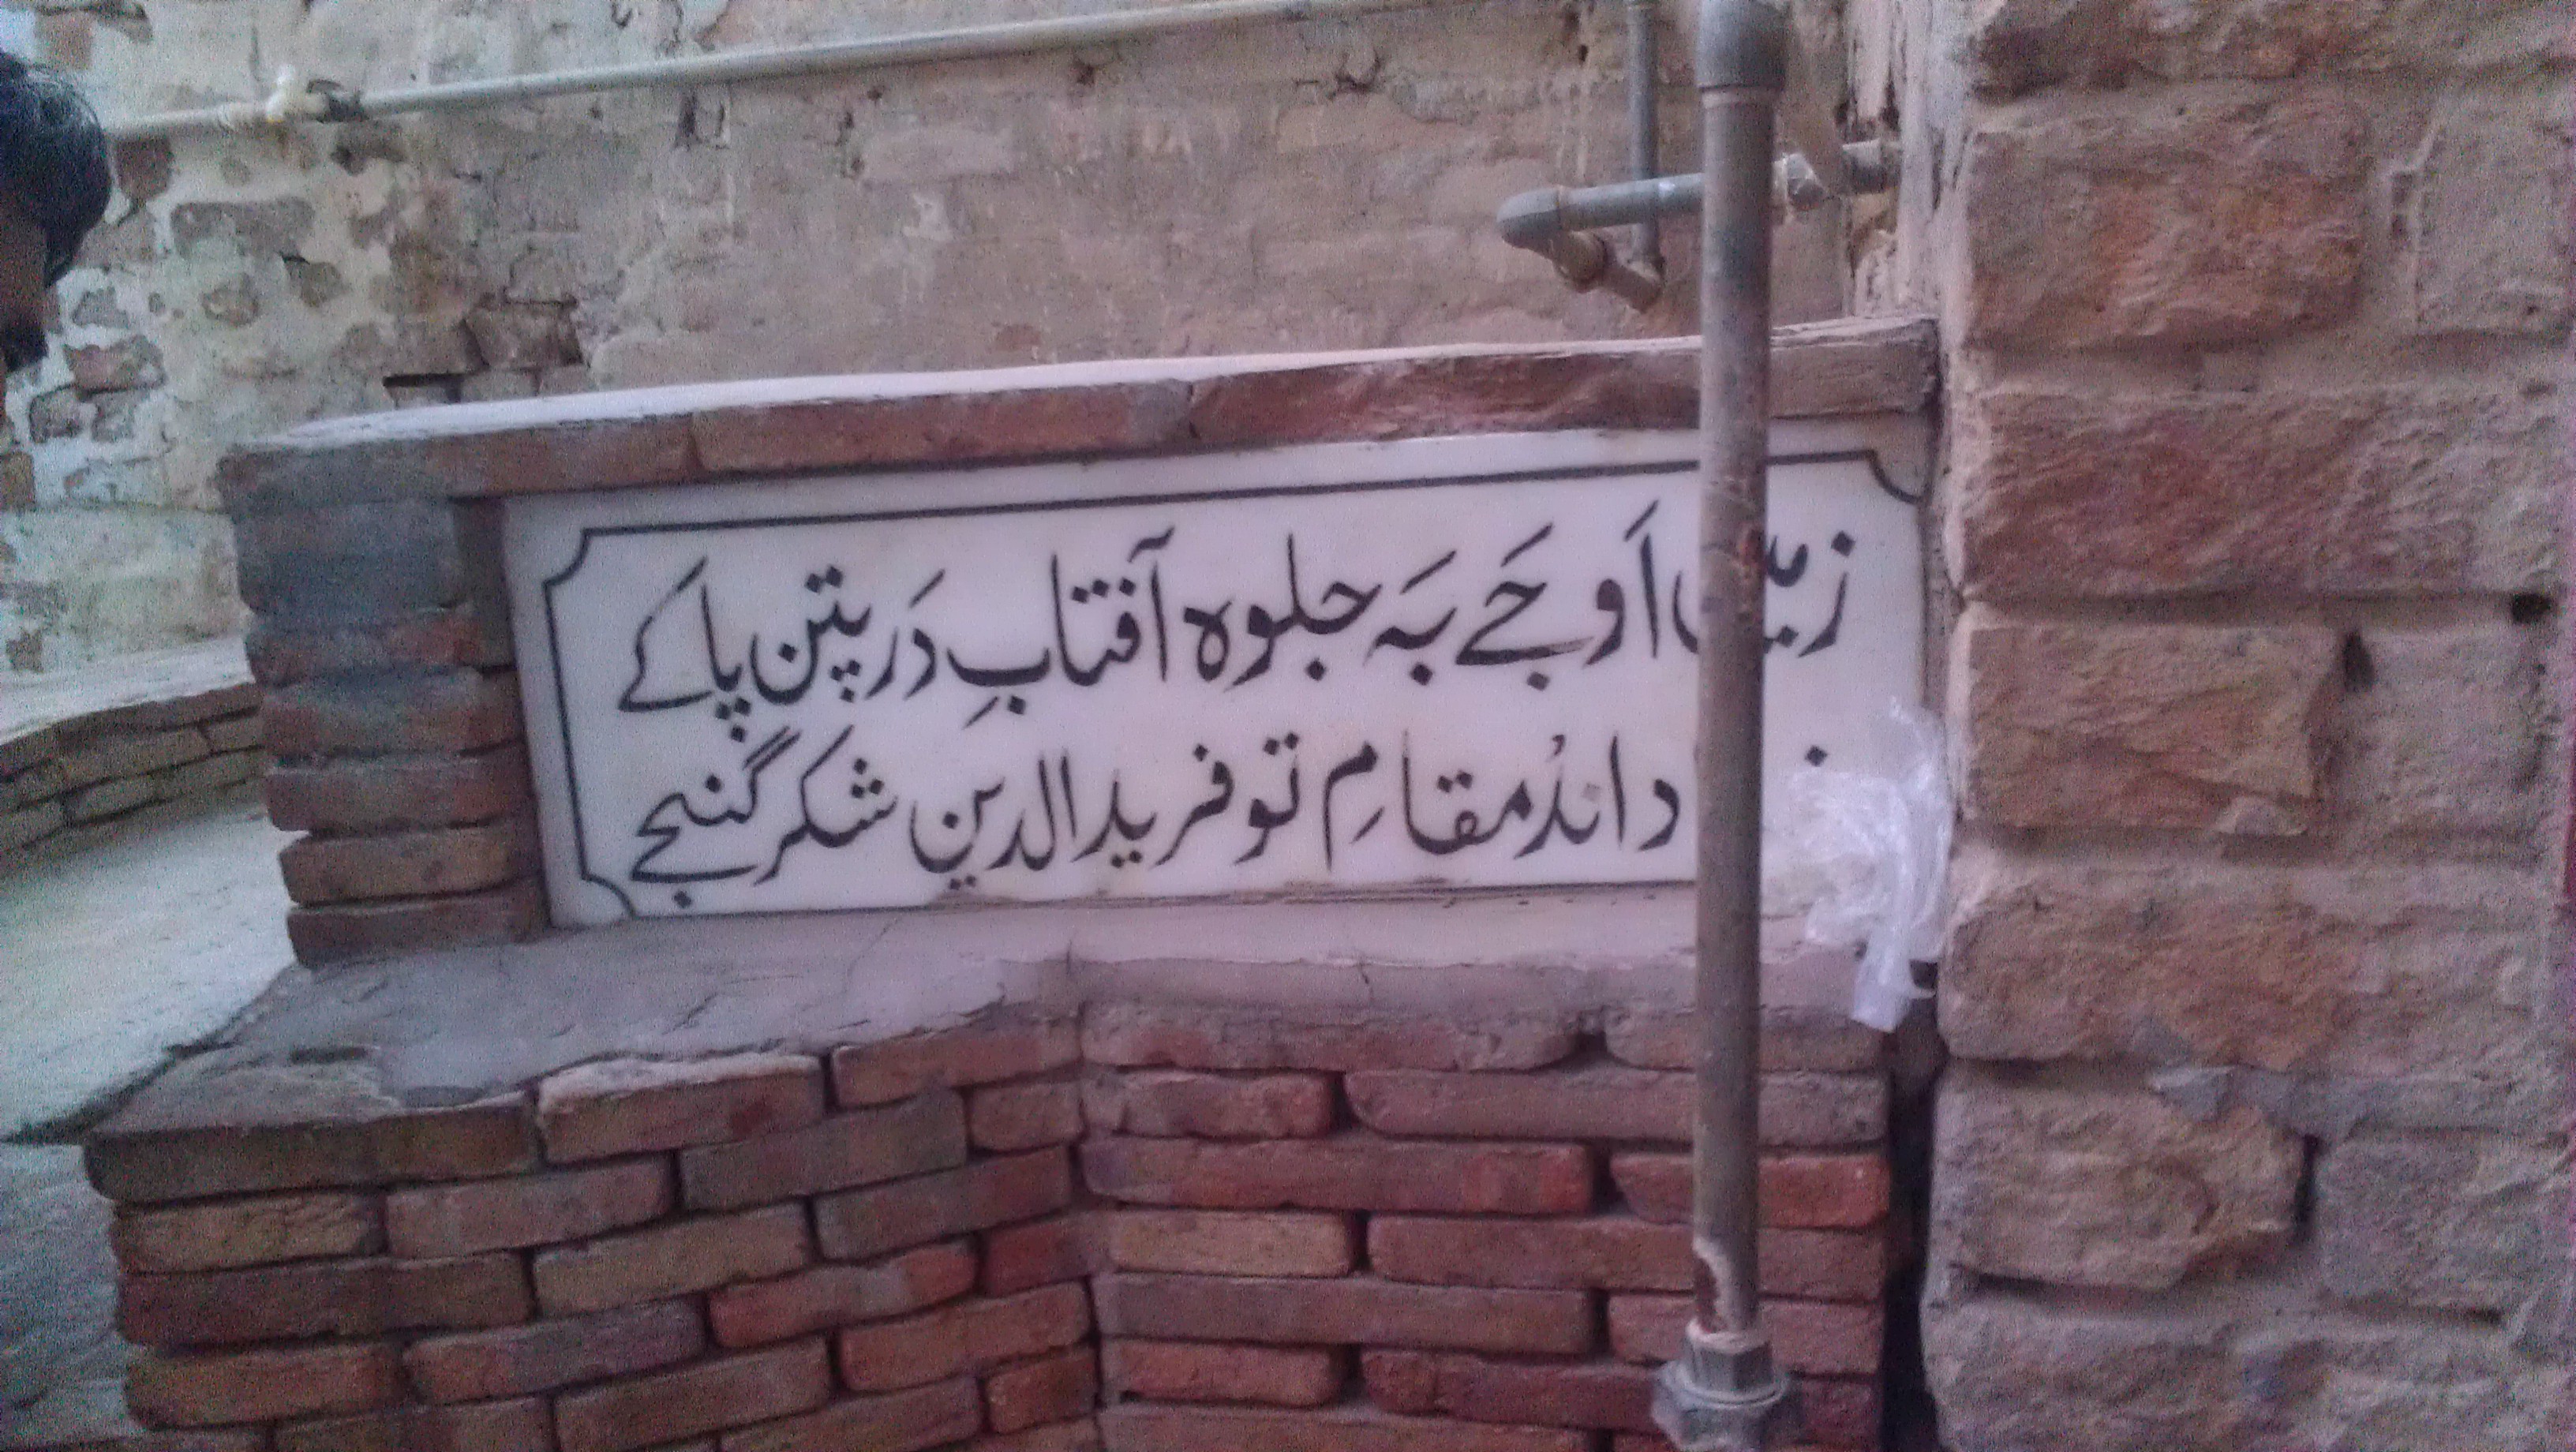 اَوجَے بَہ جلوہ آفتابِ دَر پتن پاکے
داندُ مقامِ تو فریدالدین شکر گنجے